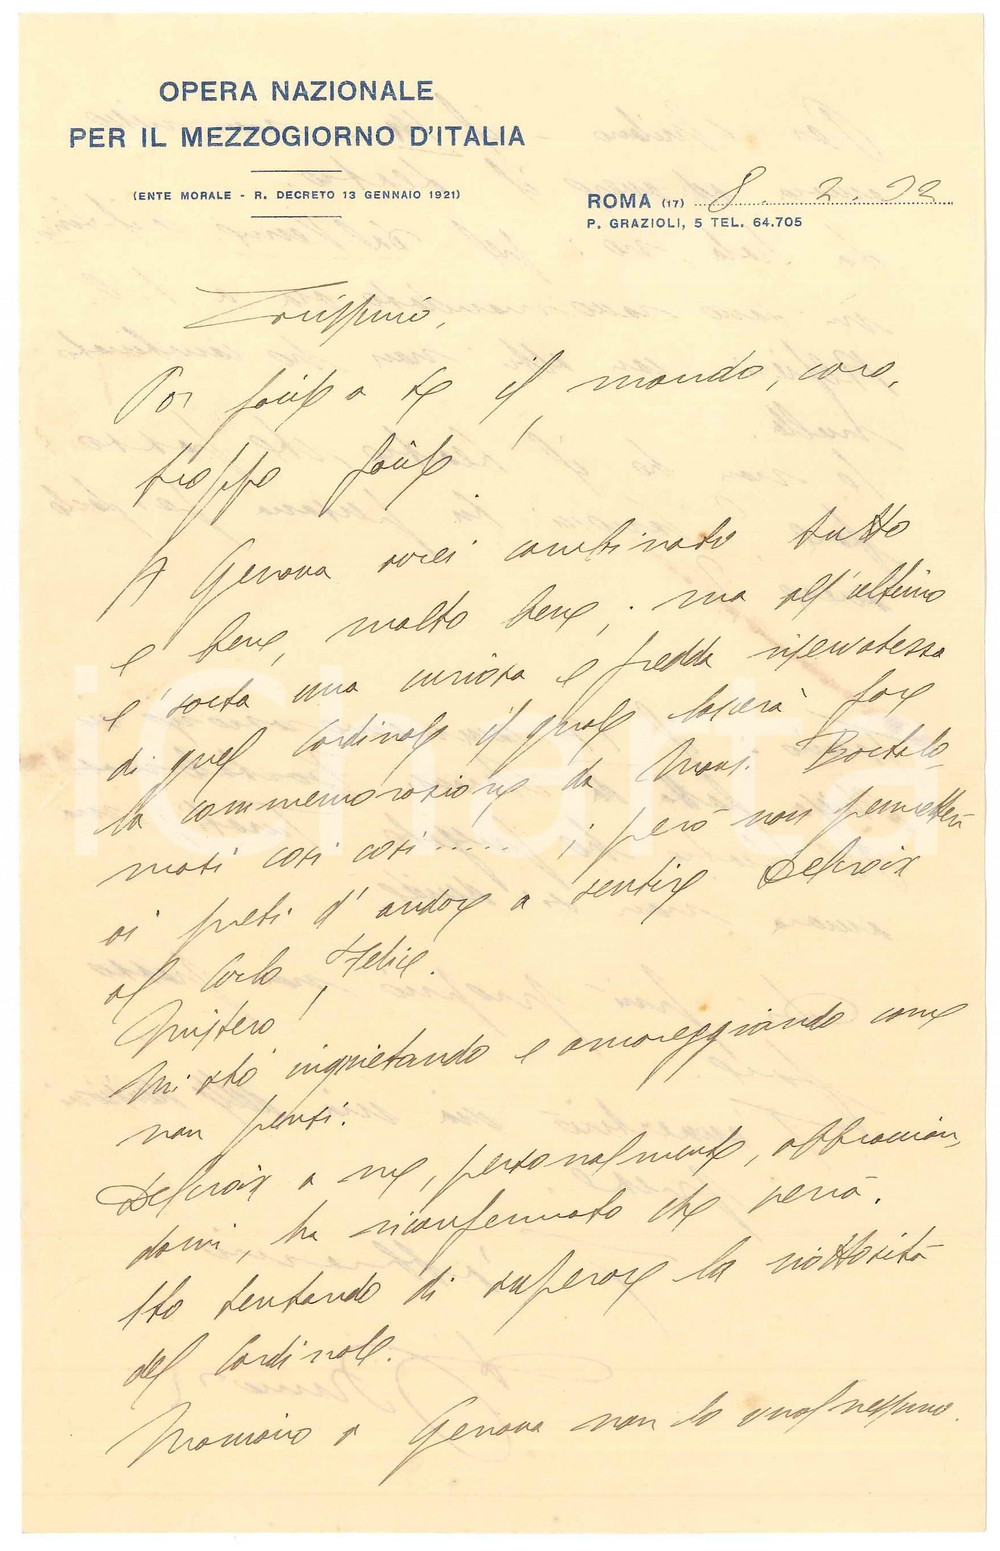 OPERA NAZIONALE
PER IL MEZZOGIORNO D'ITALIA
(ENTE MORALE - R. DECRETO 13 GENNAIO 1921)
ROMA (17) 8. 2. 32
P. GRAZIOLI, 5 TEL. 64.705
Par facile a te il mondo, caro,
troppo facile!
A Genova avrei combinato tutto
e bene, molto bene; ma all'ultimo
e' sorta una curiosa e fredda riservatezza
di quel Cardinale il quale lascerà fare
la commemorazione da Mons. Bortolo-
masi così così.....; però non permetterà
ai preti d'andare a sentire Delcroix
al Carlo Felice.
Mistero!
Mi sto inquietando e amareggiando come
non pensi.
Delcroix a me, personalmente, abbraccian-
domi, ha riconfermato che verrà.
Sto tentando di superare la riottosità
del Cardinale.
a Genova non lo vuol nessuno.
iCharta